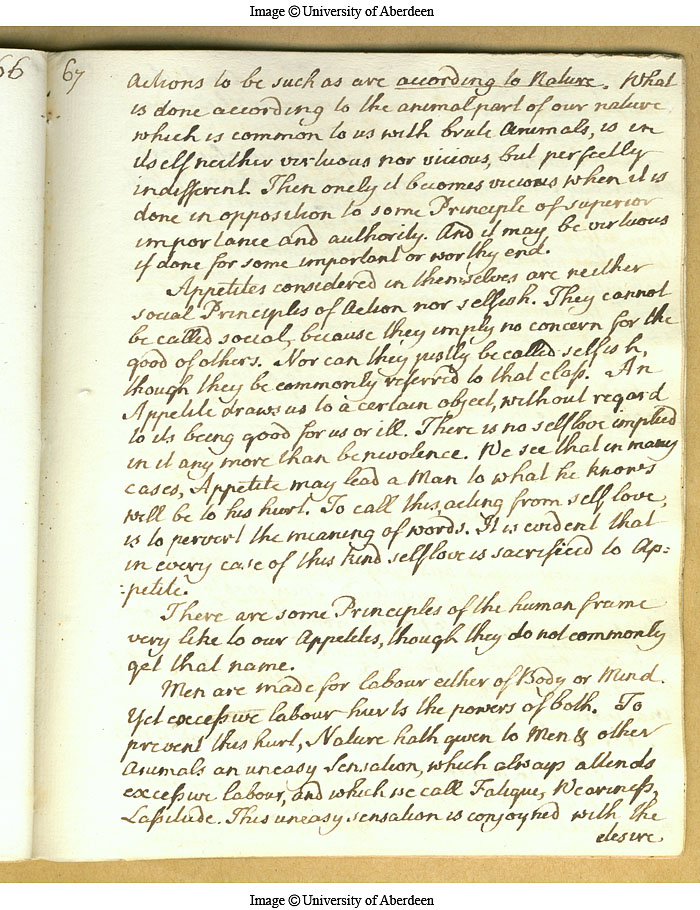 Image © University of Aberdeen
66
67
actions to be such as are according to Nature. What
is done according to the animal part of our nature
which is common to us with brute Animals, is in
itself neither virtuous nor vicious, but perfectly
indifferent. Then onely it becomes vicious when it is
done in opposition to some Principle of superior
importance and authority. And it may be virtuous
if done for some important or worthy end.
Appetites considered in themselves are neither
social Principles of Action nor selfish. They cannot
be called social, because they imply no concern for the
good of others. Nor can they justly be called selfish,
though they be commonly referred to that class. An
Appetite draws us to a certain object, without regard
to its being good for us or ill. There is no self love implied
in it any more than benevolence. We see that in many
cases, Appetite may lead a Man to what he knows
will be to his hurt. To call this, acting from self love,
is to pervert the meaning of words. It is evident that
in every case of this kind self love is sacrificed to Ap:
:petite.
There are some Principles of the human frame
very like to our Appetites, though they do not commonly
get that name.
Men are made for labour either of Body or Mind.
Yet excessive labour hurts the powers of both. To
prevent this hurt, Nature hath given to Men & other
Animals an uneasy Sensation, which always attends
excessive labour, and which we call Fatigue, Weariness,
Lassitude. This uneasy sensation is conjoyned with the
desire
Image © University of Aberdeen